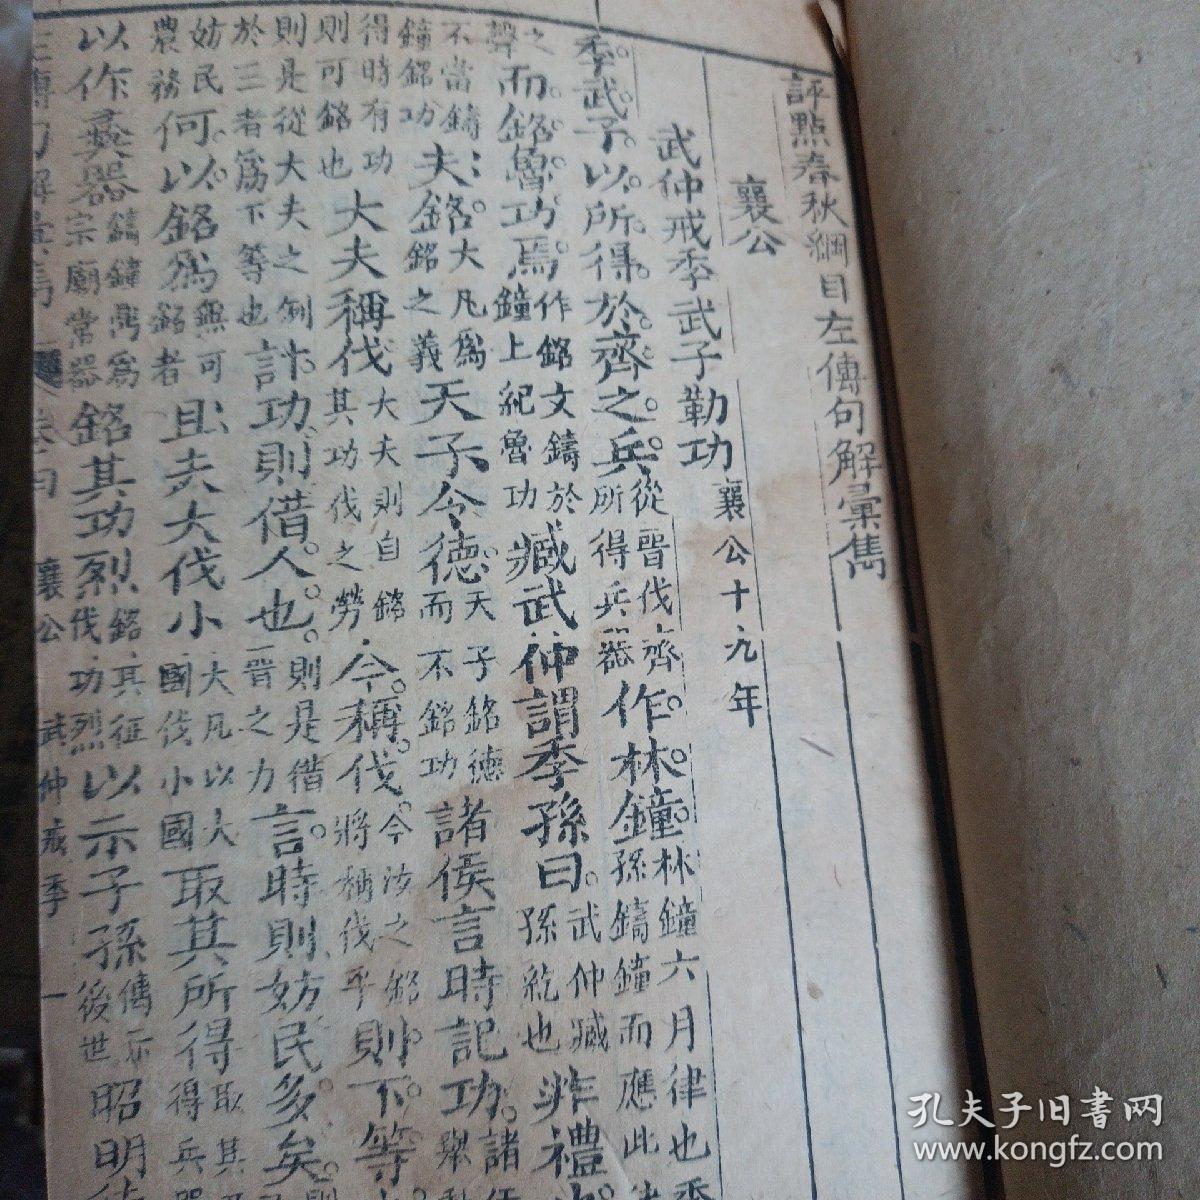 評點春秋綱目左傳句解彙雋
襄公
武仲戒季武子勒功 襄公十九年
季武子以所得於齊之兵 從晉伐齊所得兵器 作林鐘 林鐘六月律也季孫鑄鐘而應此律
聲之 而銘魯功焉 作銘文鑄於鐘上紀魯功 臧武仲謂季孫曰 武仲臧孫紇也 非禮
不當鑄鐘銘功 夫銘 大凡爲銘之義 天子令德 天子銘德而不銘功 諸侯言時記功 諸
得時有功則可銘也 大夫稱伐 大夫則自銘其功伐之勞 今稱伐 今汝之銘將稱伐乎 則下等
則是從大夫之例於三者爲下等也 計功則借人也 則是借晉之力 言時則妨民多矣
妨民農務 何以銘爲 無可銘者 且夫大伐小 大凡以大國伐小國 取其所得 取其得兵
以作彝器 鑄鐘鼎爲宗廟常器 銘其功烈 銘其征伐功烈 以示子孫 傳示後世 昭明
左傳句解 襄公 武仲戒季 一
孔夫子旧书网
www.kongfz.com